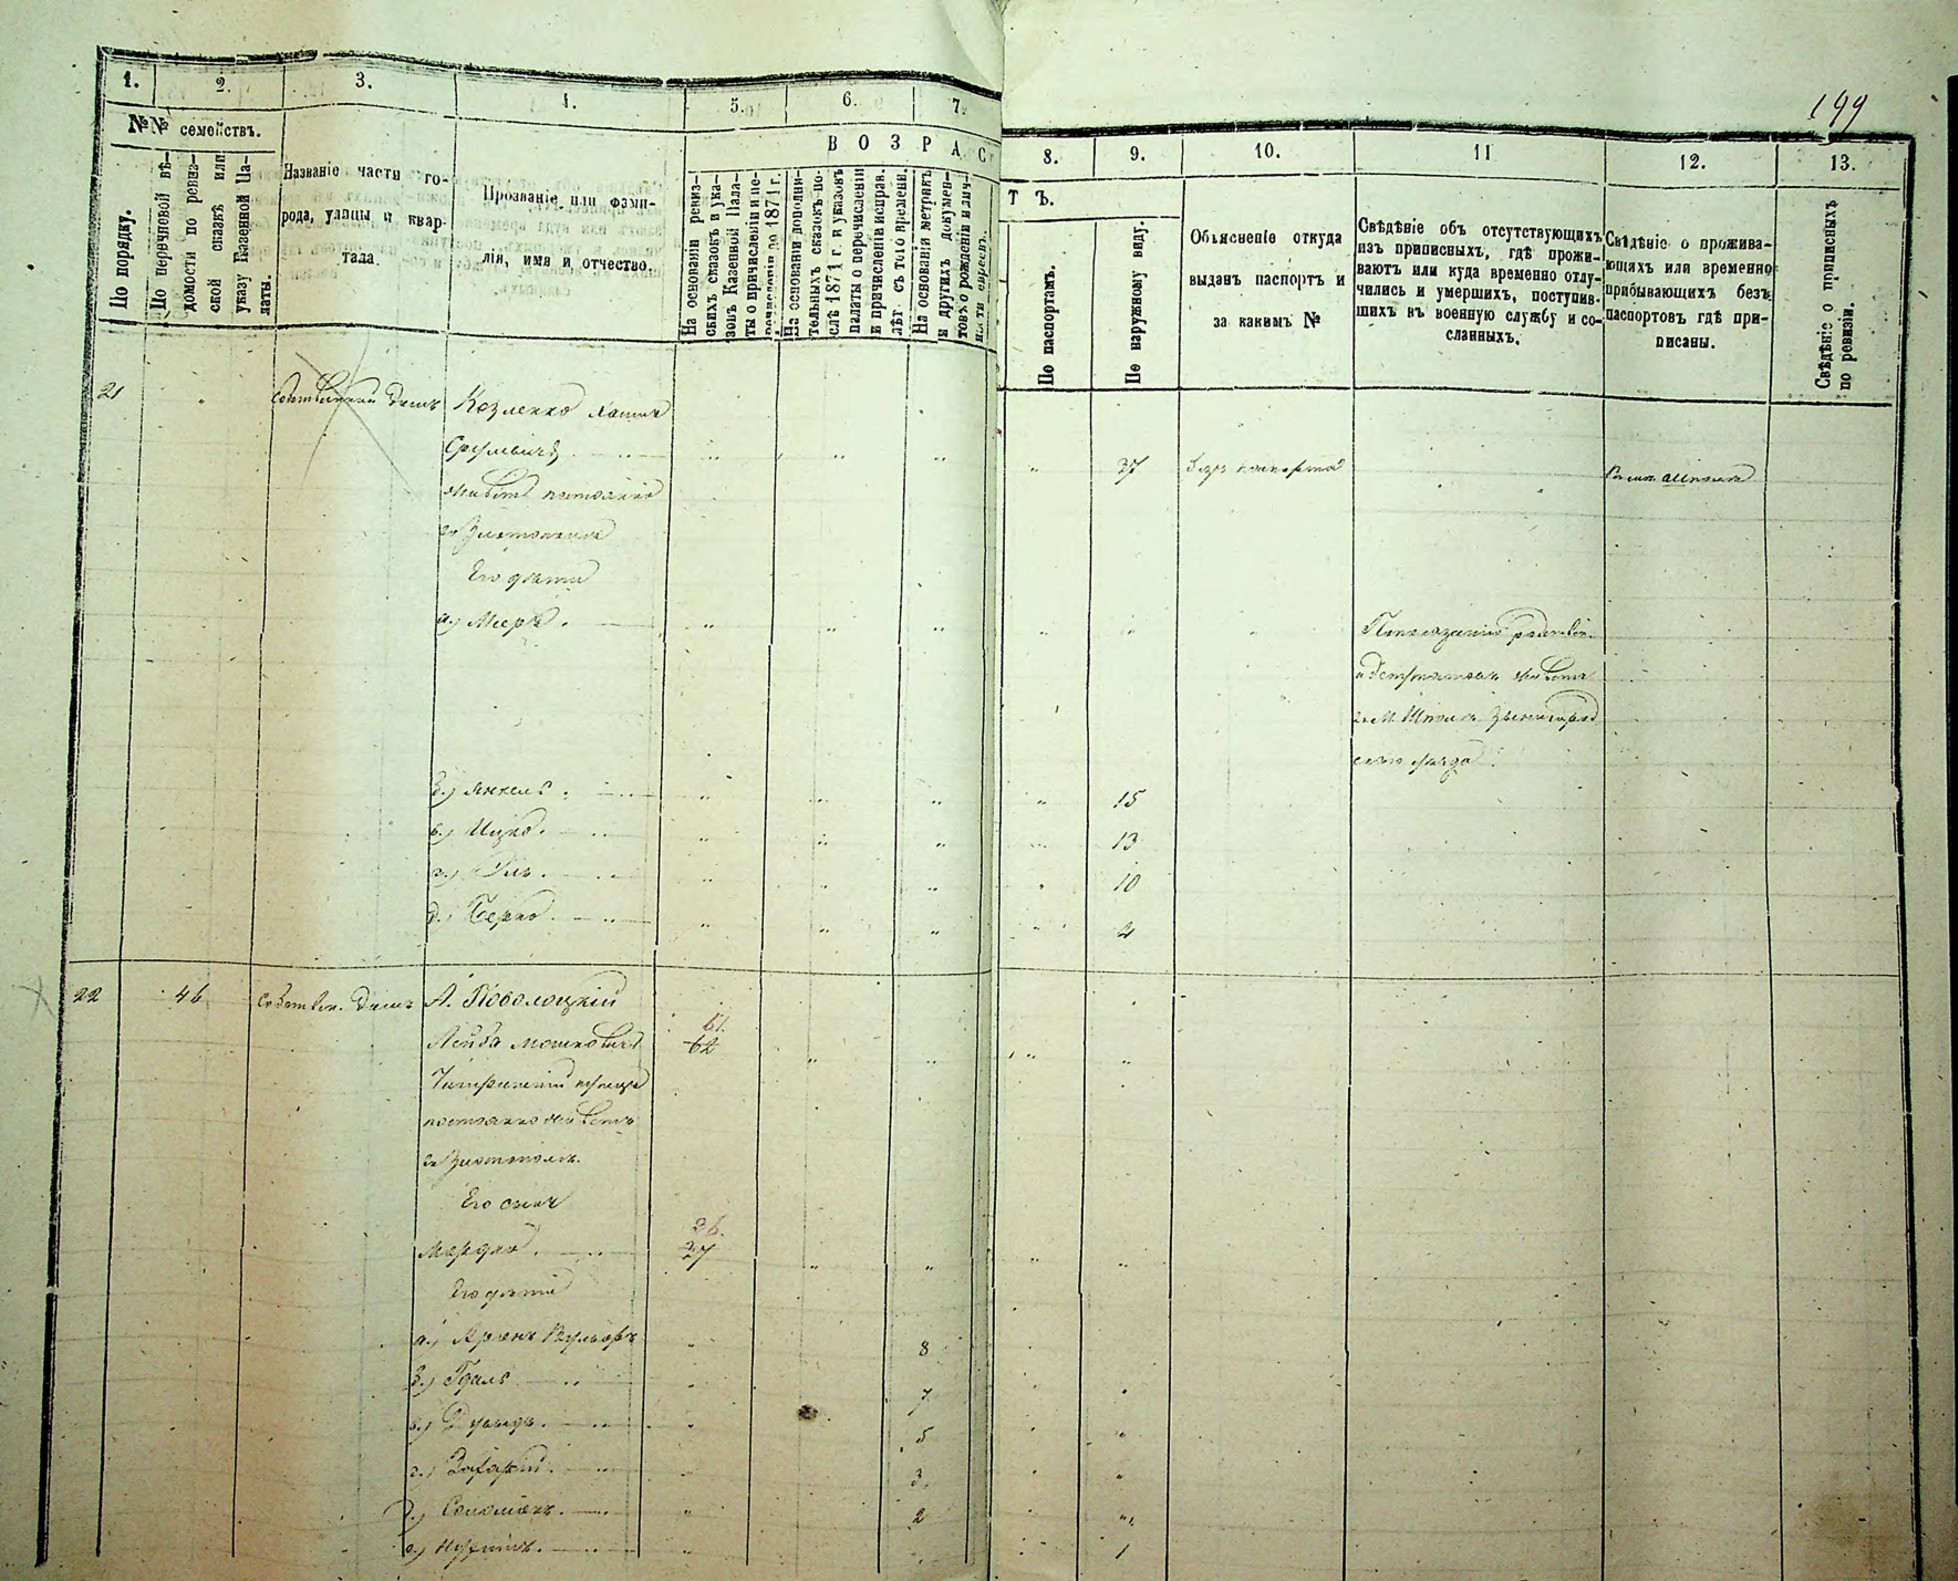 199
1.
2.
3.
4.
5.
6.
7.
8.
9.
10.
11
12.
13.
№№ семействъ.
По порядку.
По перечневой вѣ-
домости по ревиз-
ской сказкѣ или
указу Казенной Па-
латы.
Названіе части го-
рода, улицы и квар-
тала.
Прозваніе или фами-
лія, имя и отчество.
ВОЗРАС
ТЪ.
На основаніи ревиз-
скихъ сказокъ и ука-
зовъ Казенной Пала-
ты о причисленіи и пе-
речисленіи до 1871 г.
На основаніи дополни-
тельныхъ сказокъ по-
слѣ 1871 г. и указовъ
палаты о перечисленіи
и причисленіи исправ.
лѣт. съ того времени.
На основаніи метрикъ
и другихъ докумен-
товъ о рожденіи и лич-
ности евреевъ.
По паспортамъ.
По наружному виду.
Объясненіе откуда
выданъ паспортъ и
за какимъ №
Свѣдѣніе объ отсутствующихъ
изъ приписныхъ, гдѣ прожи-
ваютъ или куда временно отлу-
чились и умершихъ, поступив-
шихъ въ военную службу и со-
сланныхъ.
Свѣдѣніе о прожива-
ющихъ или временно
прибывающихъ безъ
паспортовъ гдѣ при-
писаны.
Свѣдѣніе о приписныхъ
по ревизіи.
21 Собственный домъ Козленко Хаимъ
Сруліовичъ 37 безъ паспорта
живетъ постоянно
въ Златополѣ
Его дѣти
а.) Меръ.
живетъ
въ М. Шполѣ Звенигород
скаго уѣзда.
б.) Янкель. 15
в.) Ицко. 13
г.) 10
д.) Берко. 2
22 46 Собствен. домъ А. Поволоцкій
Лейба Мошковичъ 61. 62
Чигиринскій купецъ
постоянно живетъ
въ Златополѣ.
Его сынъ
Мордко. 36. 37
Его дѣти
а.) Аронъ Вульфъ 8
б.) Гдаль 7
в.) Давидъ. 5
г.) Захарій. 3.
д.) Соломонъ. 2
е.) 1